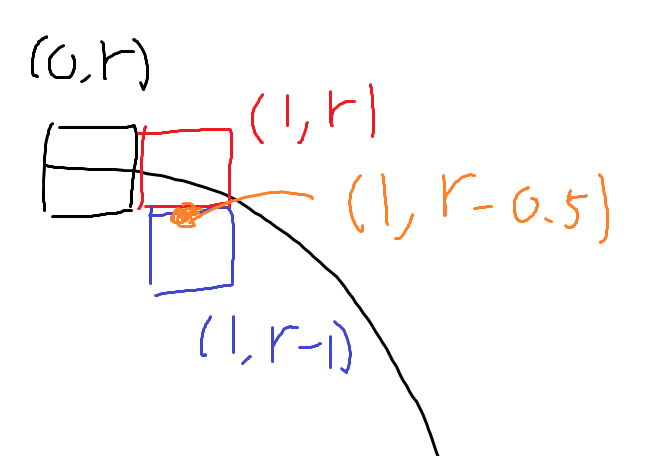 (0,r)
(1,r)
(1,r-0.5)
(1,r-1)